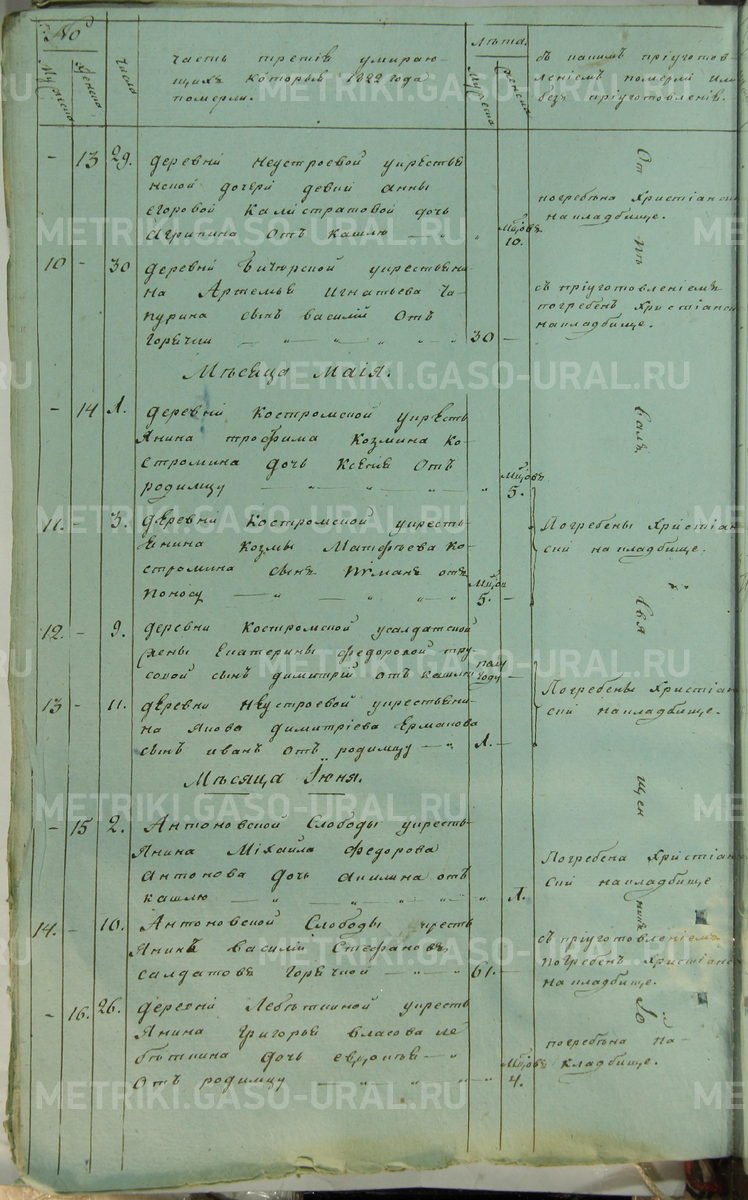 №
Мужеска
Женска
числа
часть третія умираю-
щихъ которые 1822 года
померли.
Лѣта.
Мужеска
Женска
съ какимъ пріуготов-
леніемъ померли или
безъ пріуготовленія.
- 13 29.
деревни Неустроевой укрестья
нской дочери девки анны
егоровой калистратовой дочь
Агрипина отъ кашлю
мцовъ
10.
погребѣна Христіански
на кладбище.
10 - 30
деревни Бичюрской укрестьяни
на Артемья Игнатьева Ча-
пурина сынъ василій отъ
горячки
30 -
съ пріуготовленіемъ
погребенъ Христіански
накладбище.
Мѣсяца Маія.
- 14 1.
деревни Костромской укресть
янина трофима козмина ко-
стромина дочь Ксенія отъ
родимцу
мцовъ
5.
11. - 3.
деревни Костромской укресть-
янина козмы Матфѣева ко-
стромина сынъ отъ
поносу
мцов
5. -
Погребены Христіан
ски накладбище.
12. - 9.
деревни Костромской усалдатской
жены Екатерины федоровой тру-
совой сынъ димитрій отъ кашлю
полу
году -
13 - 11.
деревни Неустроевой укрестьяни-
на якова димитріева Ермакова
сынъ иванъ отъ родимцу
1. -
Погребены Христіан
ски накладбище.
Мѣсяца Іюня.
- 15 2.
Антоновской Слободы укресть-
янина Міхайла федорова
антонова дочь акилина отъ
кашлю
1.
Погребена Христіан
ски накладбище
14. - 10.
Антоновской Слободы кресть
янинъ василій Стефановъ
салдатовъ горячкой
61. -
съ пріуготовленіемъ
погребенъ Христіанс
накладбище.
- 16. 26.
деревни Лебѣткиной укресть
янина григорья власова ле-
бѣткина дочь евдокія
отъ родимцу
мцовъ
4.
погребѣна на-
кладбище.
METRIKI.GASO-URAL.RU